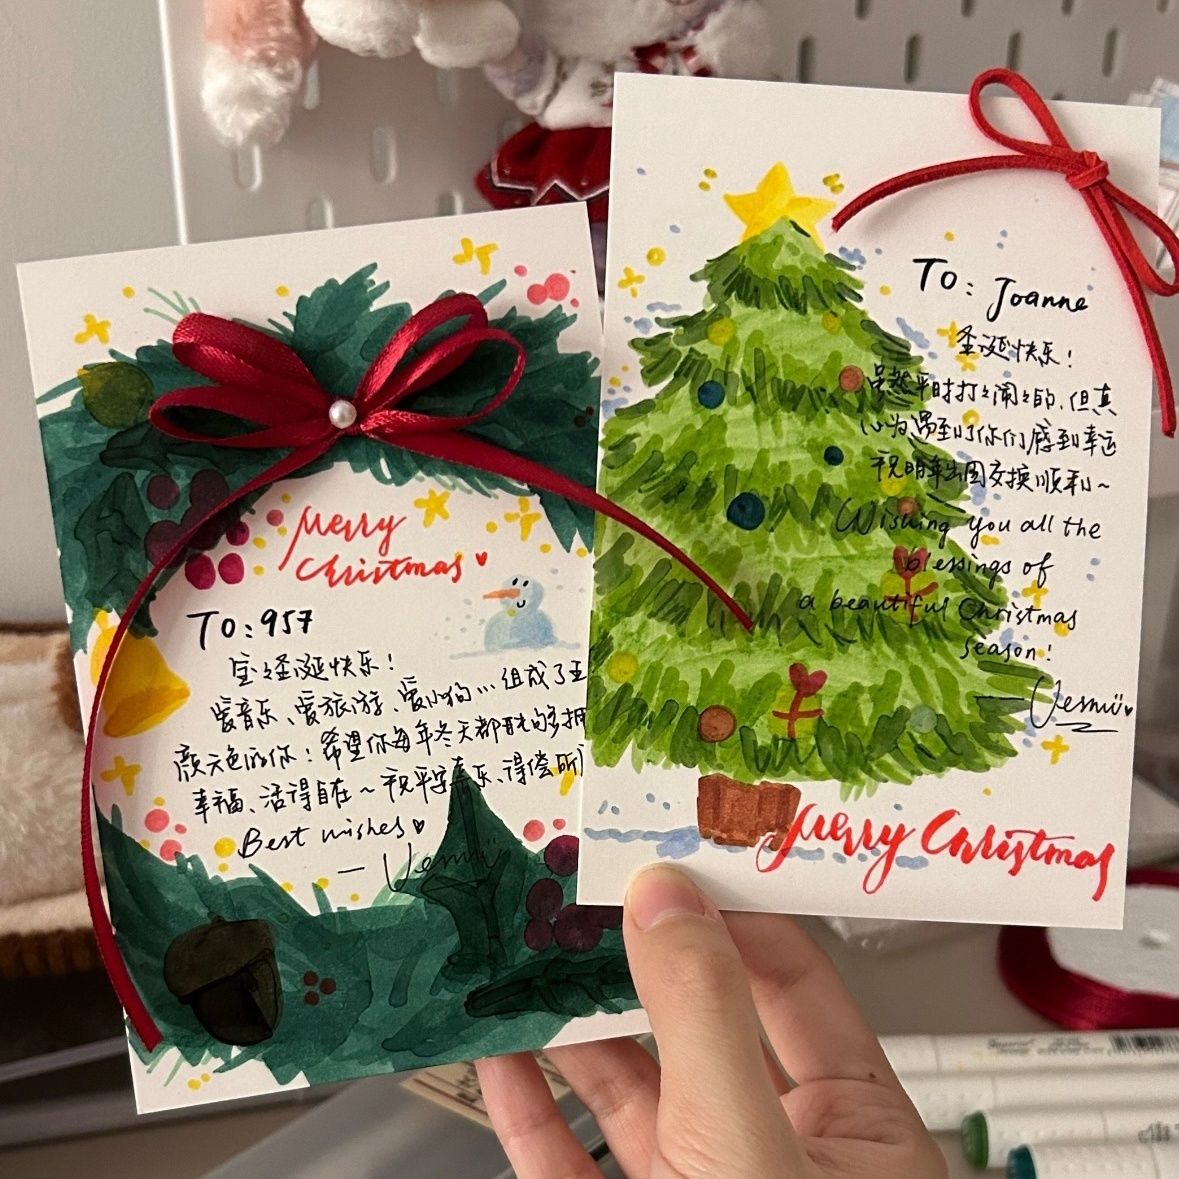 Merry
Christmas
TO: 957
宝宝圣诞快乐!
爱音乐、爱旅游、爱小狗…组成了五
颜六色的你!希望你每年冬天都能够拥
幸福、活得自在~祝平安喜乐、得偿所
Best wishes
TO: Joanne
圣诞快乐!
虽然平时打打闹闹的,但真
心为遇到你们感到幸运
祝明年出国交换顺利~
Wishing you all the
blessings of
a beautiful Christmas
season!
Merry Christmas